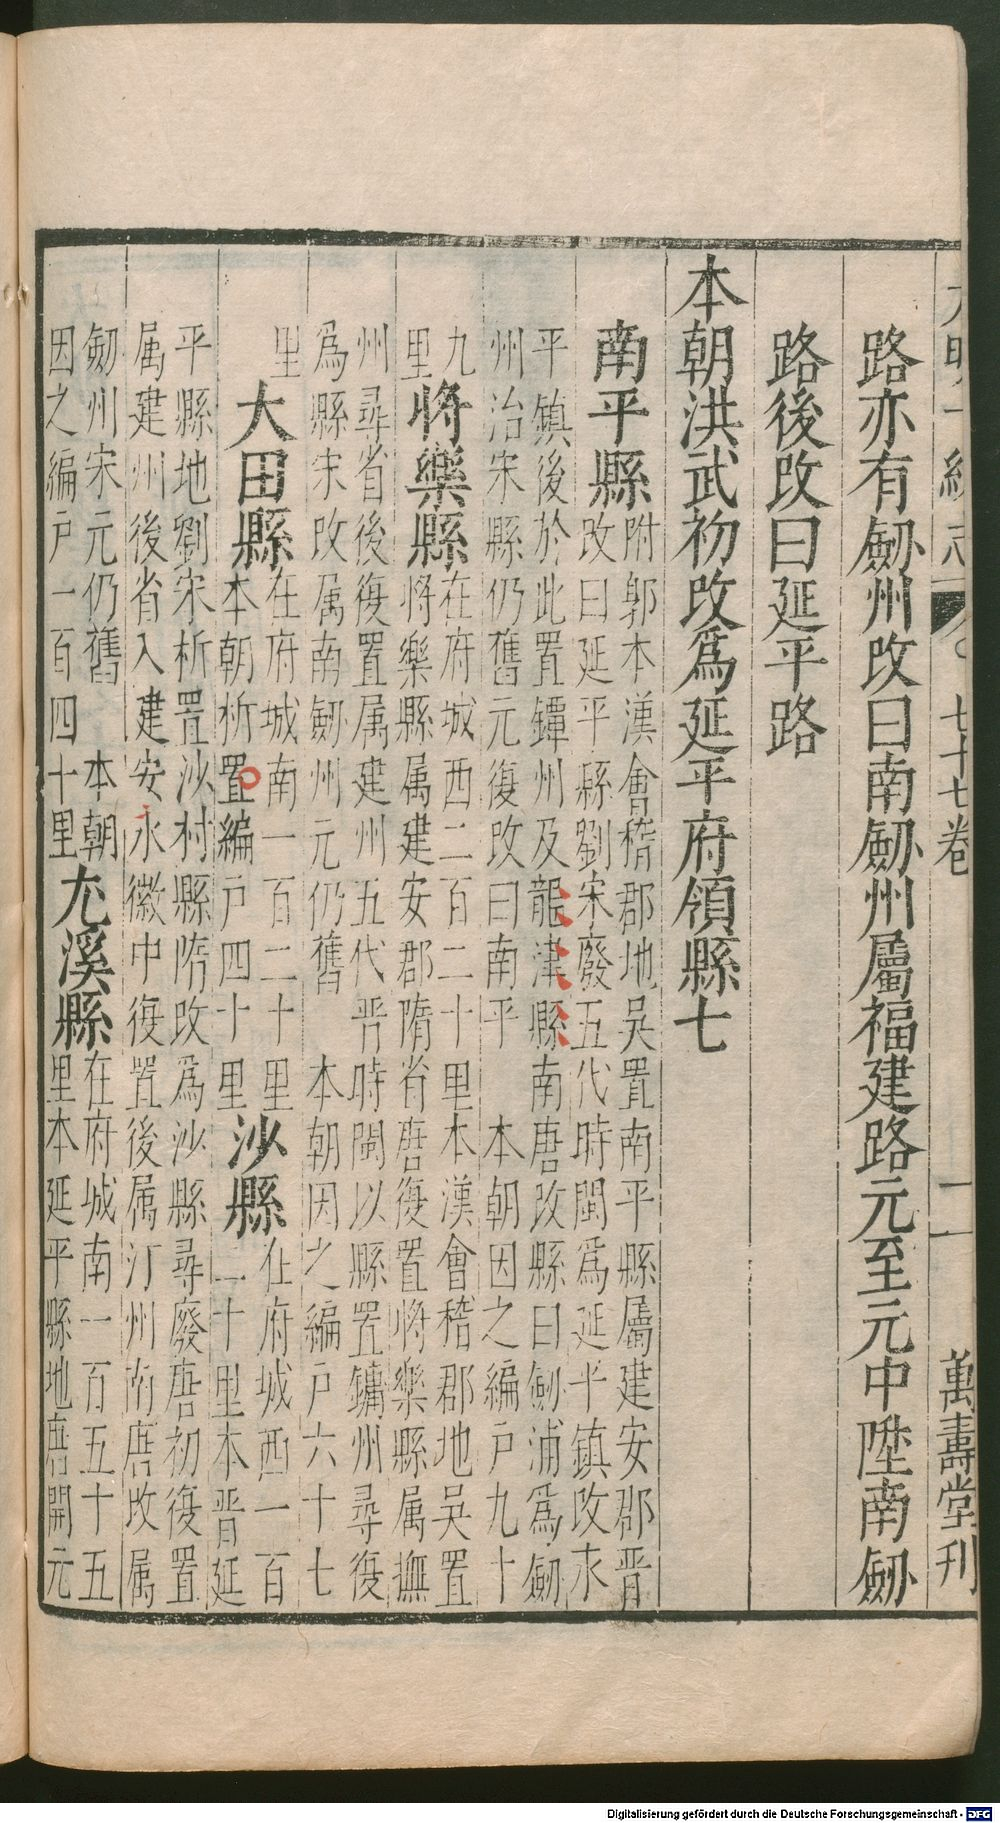 大明一統志 七十七卷 二 萬壽堂刊
路亦有劒州改曰南劒州屬福建路元至元中陞南劒
路後改曰延平路
本朝洪武初改爲延平府領縣七
南平縣
附郭本漢會稽郡地吳置南平縣屬建安郡晋
改曰延平縣劉宋廢五代時閩爲延平鎮改永
平鎮後於此置鐔州及龍津縣南唐改縣曰劒浦爲劒
州治宋縣仍舊元復改曰南平 本朝因之編户九十
九
里
將樂縣
在府城西二百二十里本漢會稽郡地吳置
將樂縣属建安郡隋省唐復置將樂縣属撫
州尋省後復置属建州五代晋時閩以縣置鏞州尋復
爲縣宋改属南劒州元仍舊 本朝因之編户六十七
里
大田縣
在府城南一百二十里
本朝析置編户四十里
沙縣
在府城西一百
二十里本晋延
平縣地劉宋析置沙村縣隋改爲沙縣尋廢唐初復置
属建州後省入建安永徽中復置後属汀州南唐改属
劒州宋元仍舊 本朝
因之編户一百四十里
尤溪縣
在府城南一百五十五
里本延平縣地唐開元
Digitalisierung gefördert durch die Deutsche Forschungsgemeinschaft - DFG